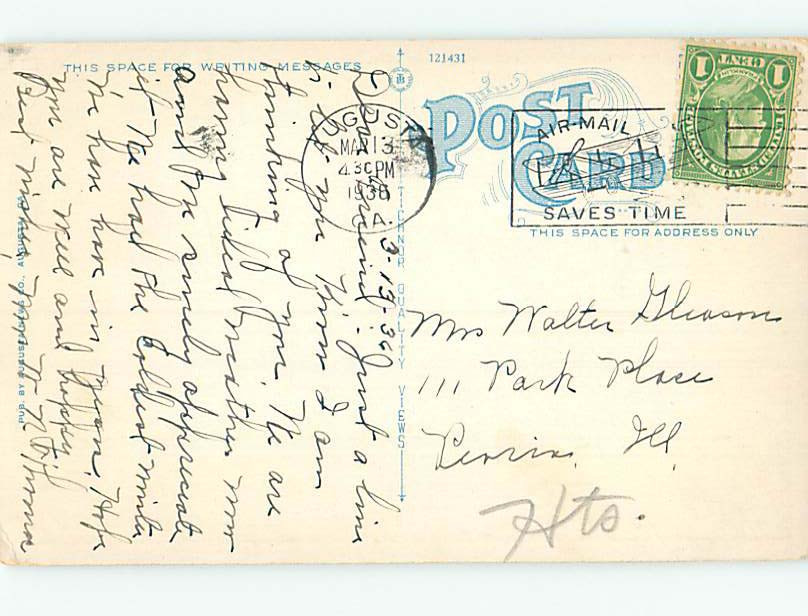 THIS SPACE FOR WRITING MESSAGES
121431
POST CARD
THIS SPACE FOR ADDRESS ONLY
1 CENT 1
MAR 13
4 30 PM
1936
GA.
AIR-MAIL
SAVES TIME
3-13-36
Dear Friend: Just a line
to let you know I am
thinking of you. We are
having ideal weather now
and we surely appreciate
it. We had the coldest winter
we have had in years. Hope
you are well and happy.
Best wishes,
Mrs Walter Gleason
111 Park Place
Peoria, Ill,
Hts.
TICHNOR QUALITY VIEWS